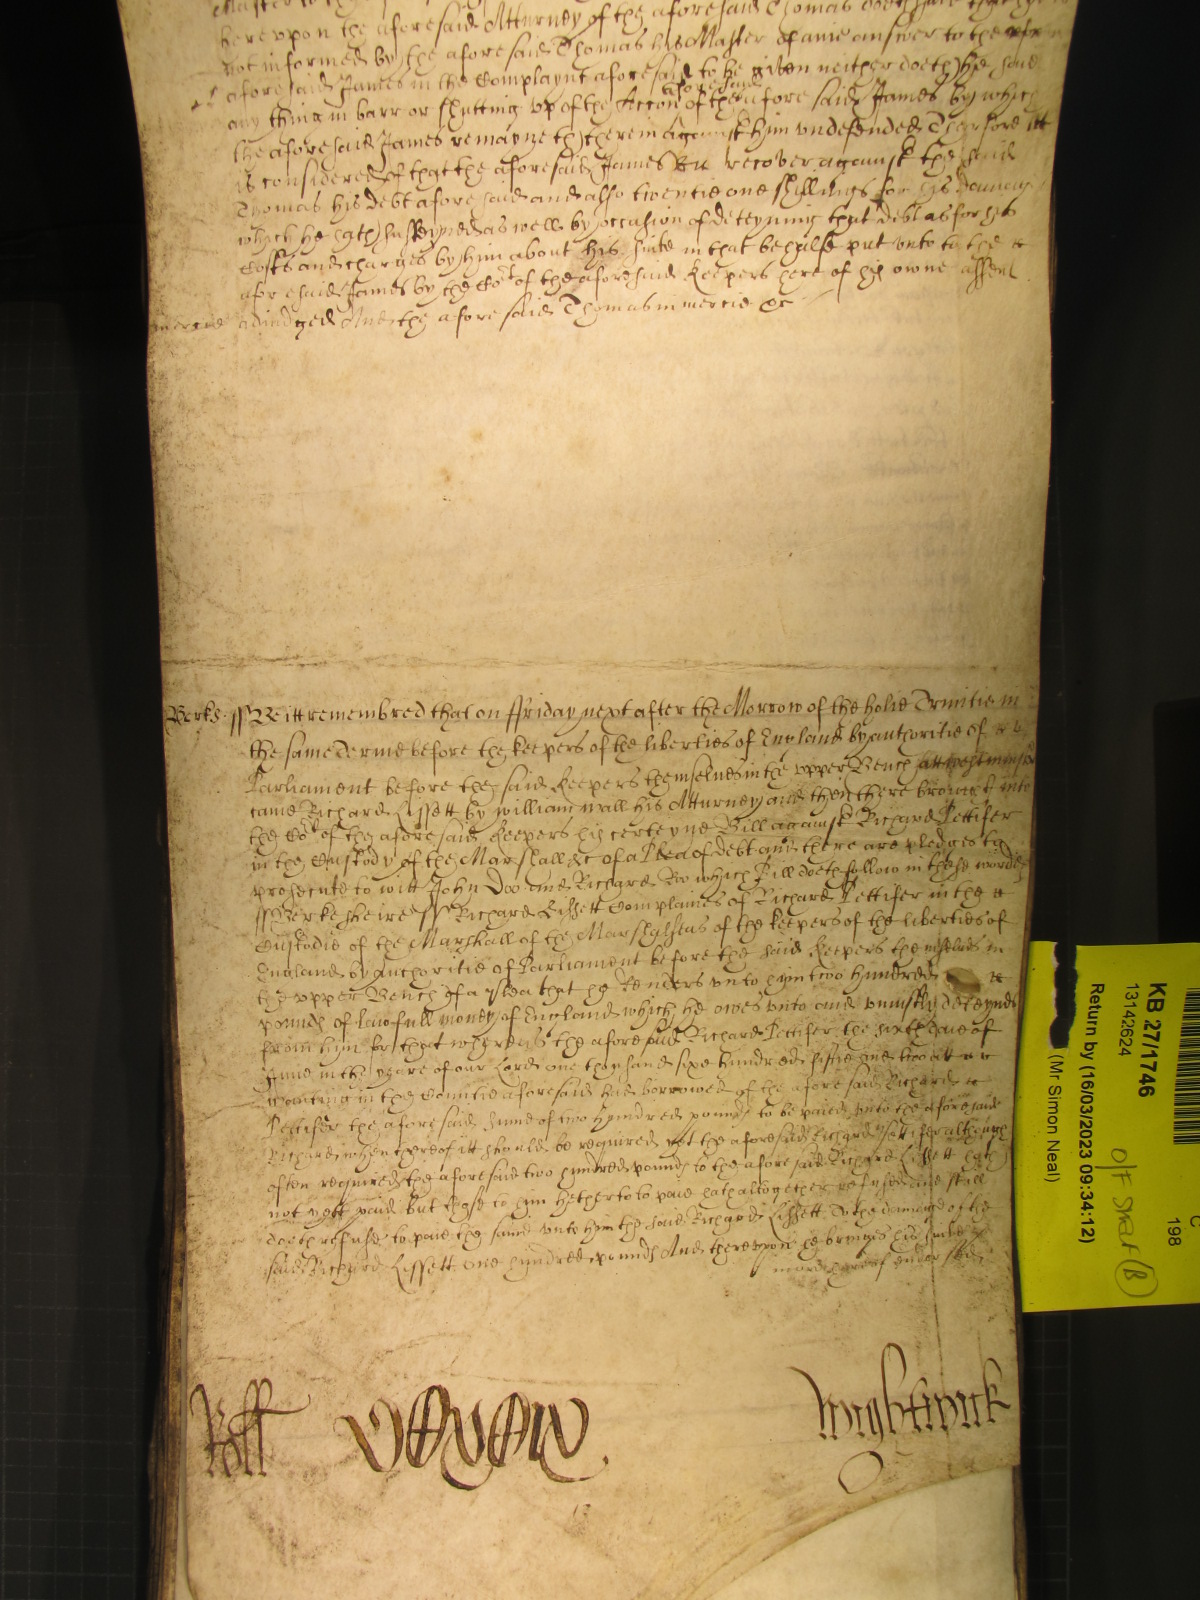 hereupon the aforesaid Atturney of the aforesaid Thomas doeth
not informed by the aforesaid Thomas his Master of anie answer to the
aforesaid James in the Complaynt aforesaid to be given neither doeth he said
any thing in barr or shutting up of the Accon aforesaid of the aforesaid James by which
the aforesaid James remayneth therein against him undefended Therfore itt
is considered of that the aforesaid James recover against the said
Thomas his debt aforesaid and also twentie one shillings for his damages
which he hath susteyned as well by occasion of deteyning that debt as for his
Costs and charges by him about his suite in that behalfe put unto to the
aforesaid James by the Cot of the aforesaid Keepers here of his owne assent
mercie adiudged And the aforesaid Thomas in mercie &c
Berks ss Be itt remembred that on ffriday next after the Morrow of the holie Trinitie in
the same Terme before the keepers of the liberties of England by authoritie of
Parliament before the said Keepers themselves in the upper Bench att Westminster
came Richard Lissett by William Wall his Atturney and then there brought into
the Cot of the aforesaid Keepers his certeyne Bill against Richard Pettifer
in the Custody of the Marshall &c of a Plea of debt and there are pledges to
prosecute to witt John Doo and Richard Roo which Bill doeth follow in these wordes
ss Berkesheire ss Richard Lissett Complaines of Richard Pettifer in the
Custodie of the Marshall of the Marshalseas of the keepers of the liberties of
England by Authoritie of Parliament before the said Keepers themselves in
the upper Bench of a plea that he Renders unto him two hundred
pounds of lawfull money of England which he owes unto and uniustly deteynes
from him for that whereas the aforesaid Richard Pettifer the sixth daie of
June in the yeare of our Lord one thousand sixe hundred fiftie and two att
Wantinge in the Countie aforesaid had borrowed of the aforesaid Richard
Pettifer the aforesaid summe of two hundred pounds to be paied unto the aforesaid
Richard when thereof itt should be required yet the aforesaid Richard Pettifer although
often required the aforesaid two hundred pounds to the aforesaid Richard Lissett hath
not yett paid but those to him hetherto to paie hath altogether refused and still
doeth refuse to paie the same unto him the said Richard Lissett To the damage of the
said Richard Lissett one hundred pounds And thereupon he brings his suite
more hereof under side
Roll
Wightwick
KB 27/1746
13142624
Return by (16/03/2023 09:34:12)
(Mr Simon Neal)
C
198
O/F Shelf (B)